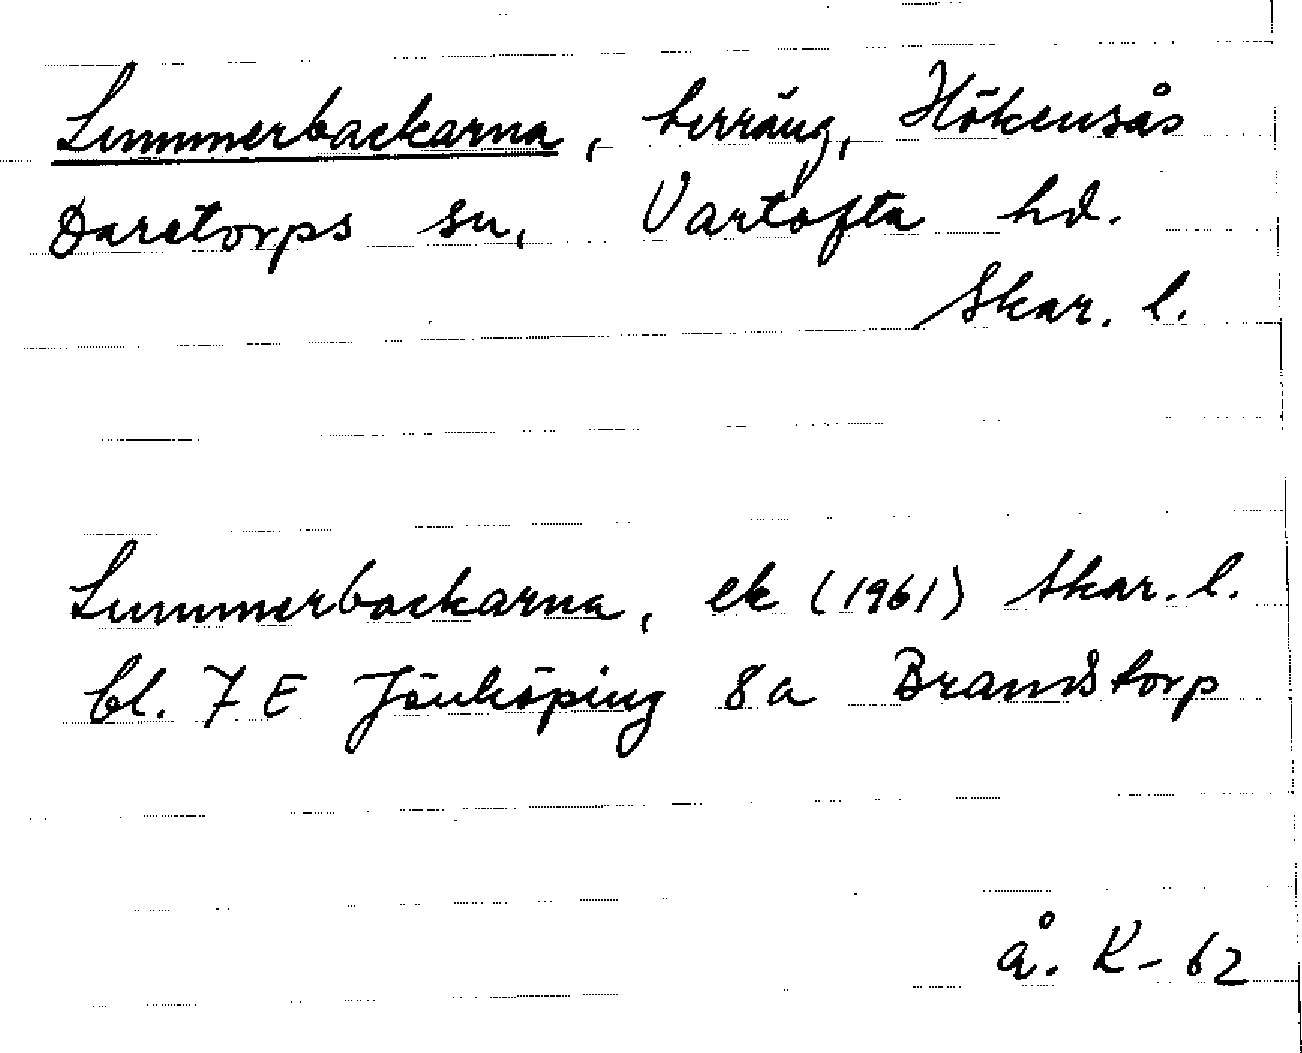 Lummerbackarna, terräng, Hökensås
Daretorps sn, Vartofta hd.
Skar. l.
Lummerbackarna, ek (1961) Skar. l.
bl. 7 E Jönköping 8a Brandstorp
å. K-62